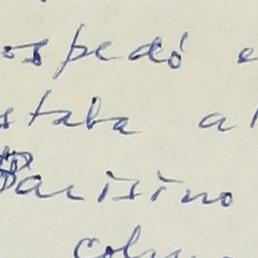 ospedó e
staba al
Parisino
colu